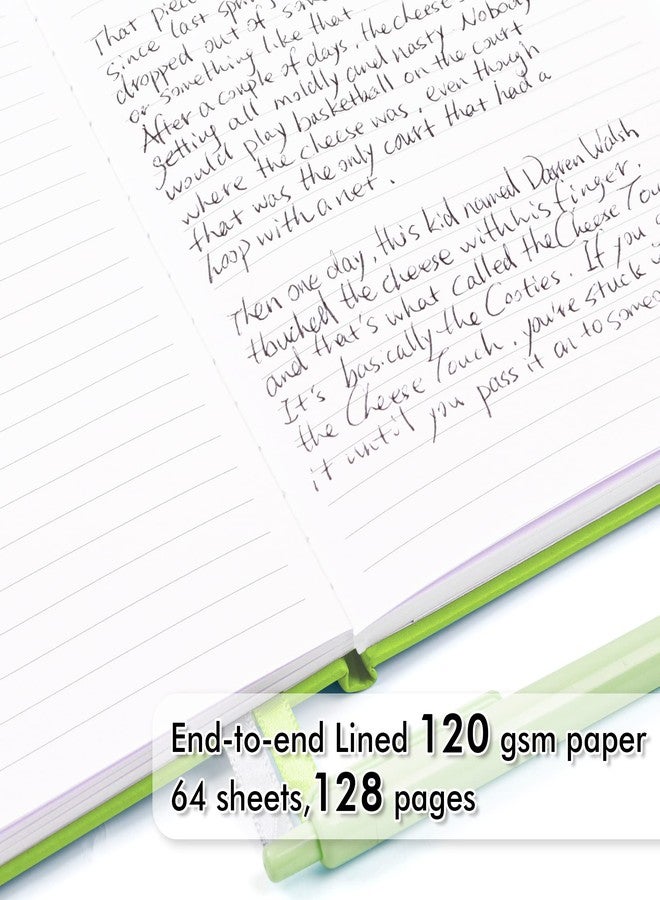 That piec
since last spr
dropped out of
or something like that
After a couple of days, the cheese
getting all moldly and nasty. Nobody
would play basketball on the court
where the cheese was, even though
that was the only court that had a
hoop with a net.
Then one day, this kid named Darren Walsh
touched the cheese with his finger.
and that's what called the Cheese Tou
It's basically the Cooties. If you
the Cheese Touch, you're stuck
it until you pass it on to some
End-to-end Lined 120 gsm paper
64 sheets,128 pages